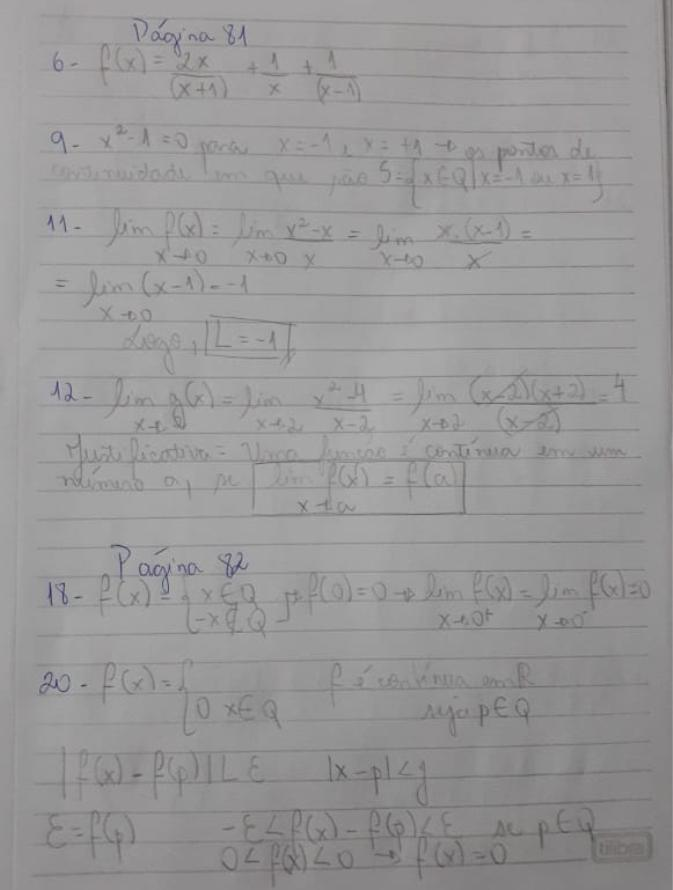 Página 81
6- f(x) = 2x/(x+1) + 1/x + 1/(x-1)
9- x²-1=0 para x=-1, x=+1 → os pontos de
continuidade em que são S={x∈Q|x=-1 ou x=1}
11- lim x→0 f(x) = lim x→0 x²-x/x = lim x→0 x.(x-1)/x =
= lim x→0 (x-1) = -1
Logo, L = -1
12- lim x→2 g(x) = lim x→2 x²-4/x-2 = lim x→2 (x-2)(x+2)/(x-2) = 4
Justificativa = Uma função é contínua em um
número a, se lim x→a f(x) = f(a)
Página 82
18- f(x) = { x∈Q {-x∉Q → f(0)=0 → lim x→0+ f(x) = lim x→0- f(x)=0
20- f(x) = { 0 x∈Q f é contínua em R
seja p∈Q
|f(x) - f(p)| < ε |x-p|<
ε=f(p) -ε<f(x)-f(p)<ε se p∈Q
0<f(x)<0 → f(x)=0
tilibra